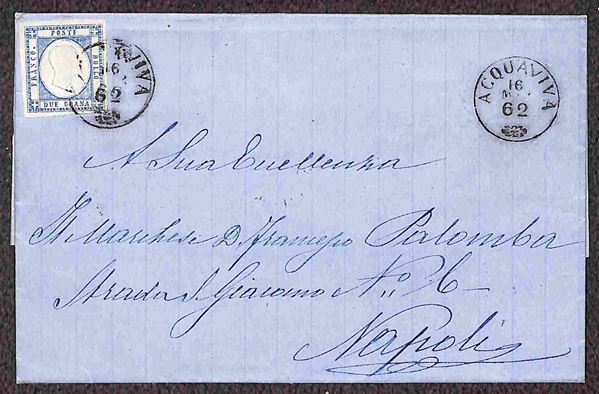 POSTE
FRANCO
BOLLO
DUE GRANA
VIVA
16
62
ACQUAVIVA
16
62
A Sua Eccellenza
Il Marchese D. Francesco Palomba
Strada S. Giacomo N.° 6
Napoli